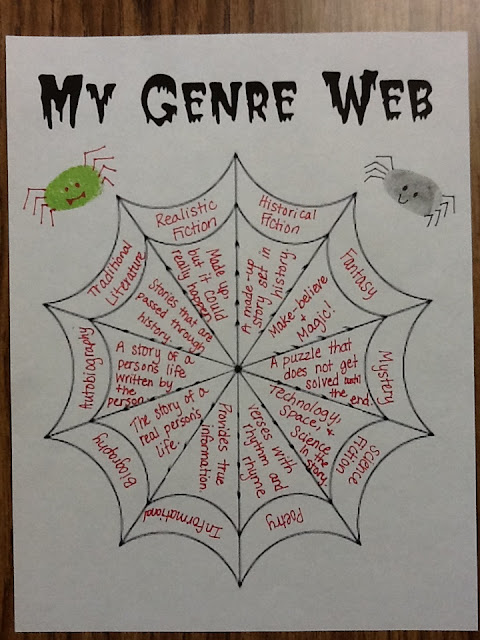 My Genre Web
Realistic
Fiction
Made up
but it could
really happen
Historical
Fiction
A made-up
story set in
history.
Fantasy
Make-believe
+
Magic!
Mystery
A puzzle that
does not get
solved until
the end.
Science
Fiction
Technology,
Space, &
Science
in the
story.
Poetry
verses with
rhythm and
rhyme
Informational
Provides true
information.
Biography
The story of a
real person's
life.
Autobiography
A story of a
person's life
written by
the
person
Traditional
Literature
Stories that are
passed through
history.